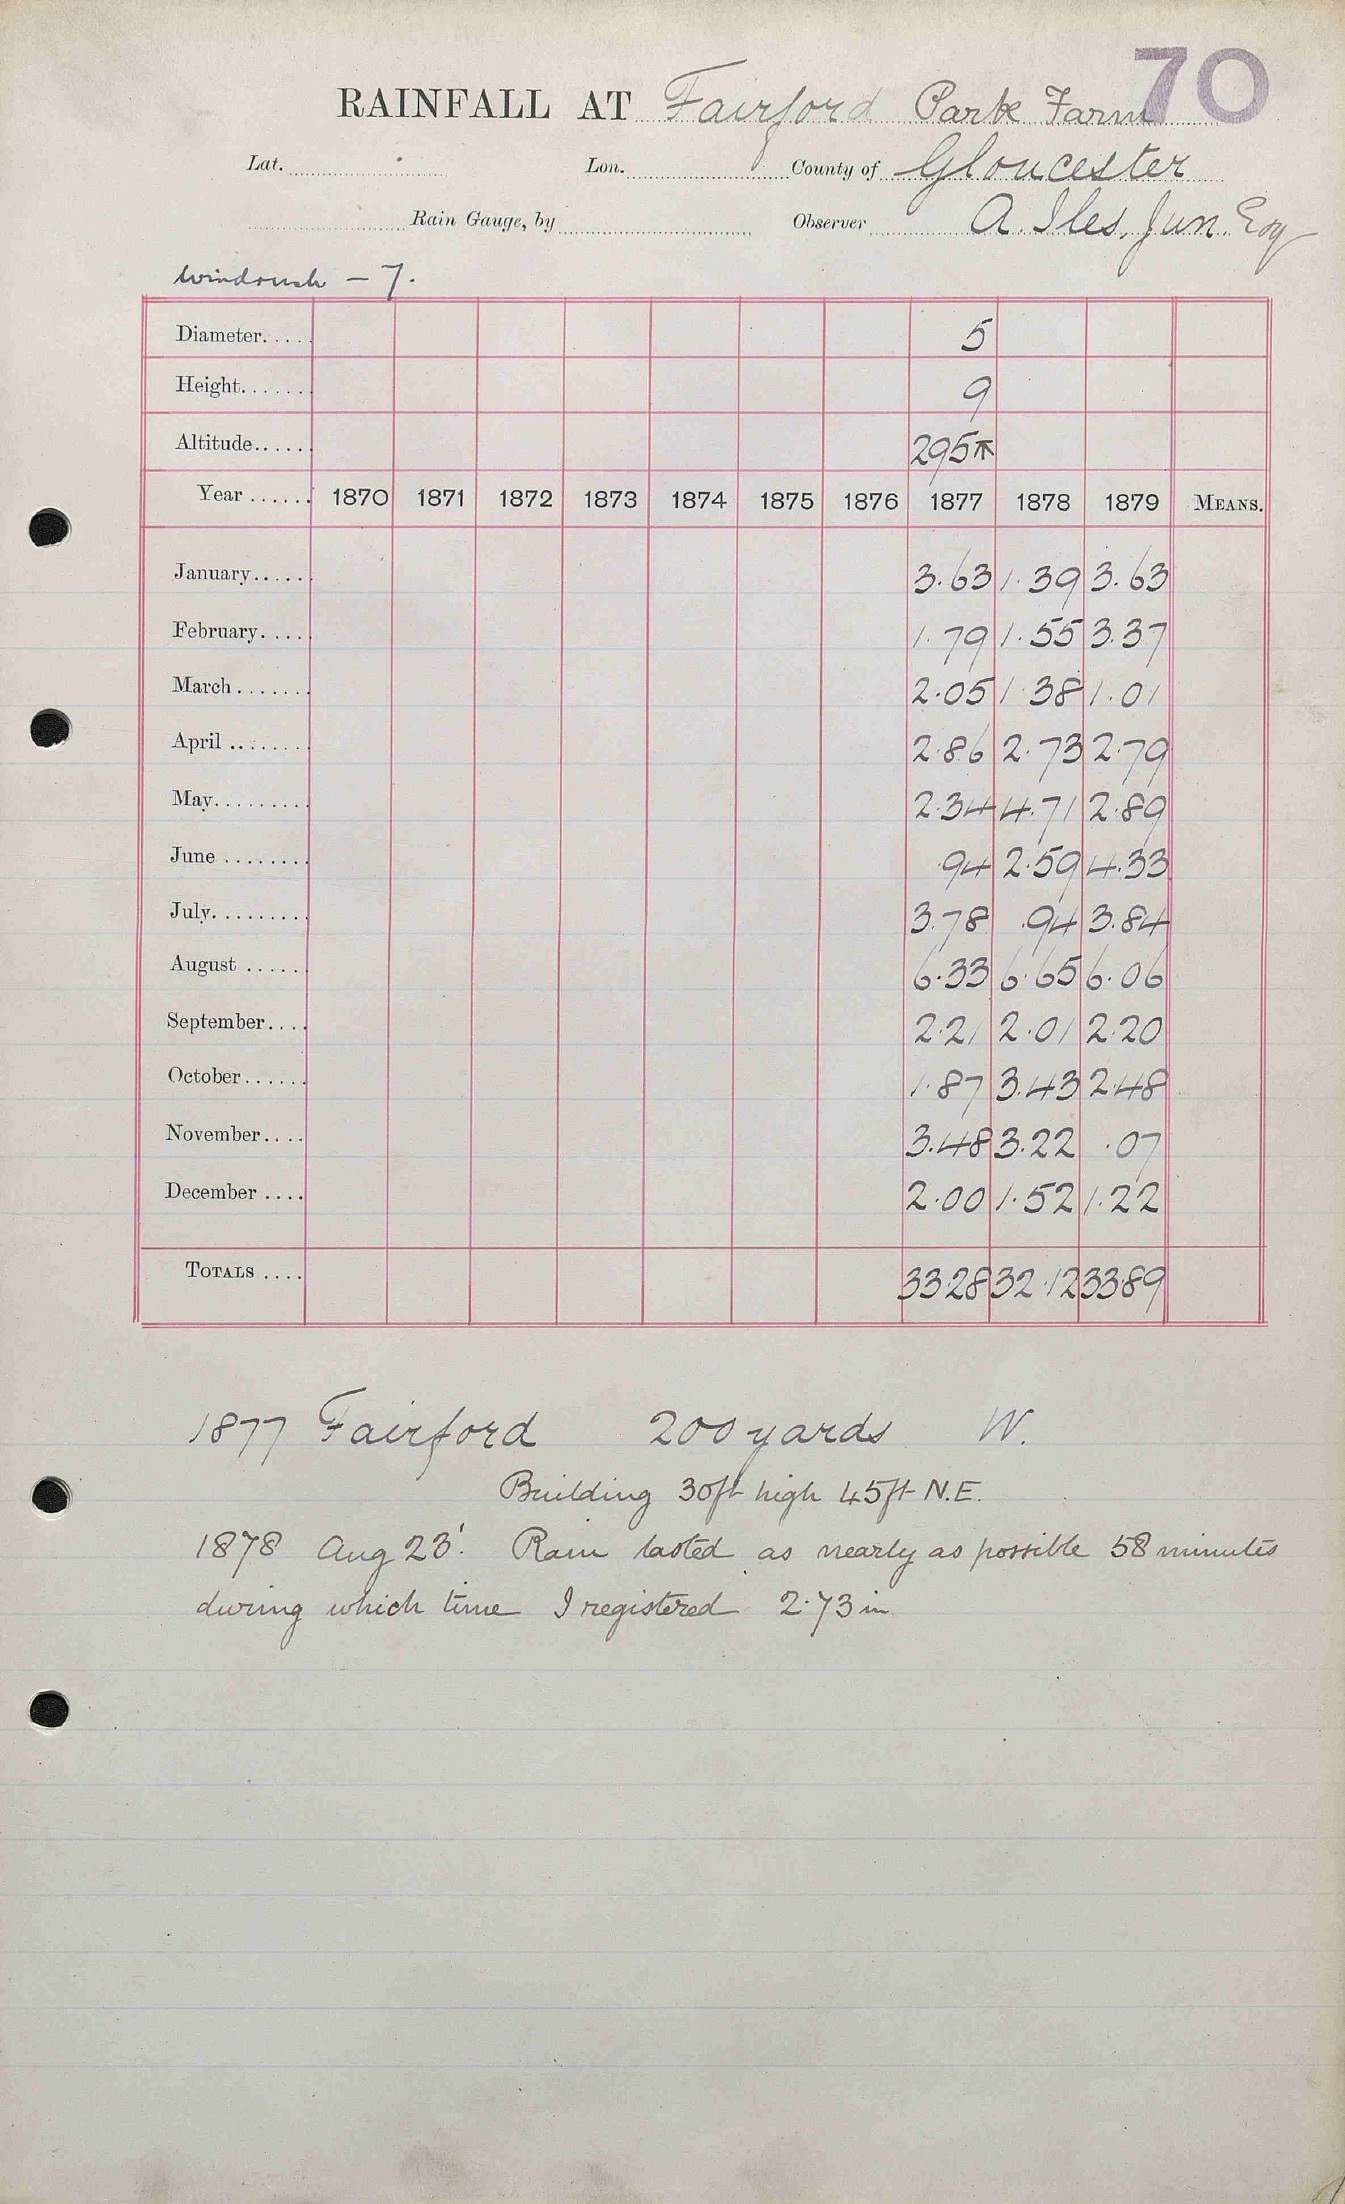 70
RAINFALL AT Fairford Park Farm
Lat. Lon. County of Gloucester
Rain Gauge, by Observer A. Iles, Jun. Esq
Windrush – 7.
Diameter..... 5
Height....... 9
Altitude...... 295
Year ...... 1870 1871 1872 1873 1874 1875 1876 1877 1878 1879 MEANS.
January...... 3.63 1.39 3.63
February..... 1.79 1.55 3.37
March ....... 2.05 1.38 1.01
April ........ 2.86 2.73 2.79
May......... 2.34 4.71 2.89
June ........ .94 2.59 4.33
July......... 3.78 .94 3.84
August ...... 6.33 6.65 6.06
September.... 2.21 2.01 2.20
October...... 1.87 3.43 2.48
November.... 3.48 3.22 .07
December .... 2.00 1.52 1.22
TOTALS .... 33.28 32.12 33.89
1877 Fairford 200 yards W.
Building 30ft high 45ft N.E.
1878 Aug 23. Rain lasted as nearly as possible 58 minutes
during which time I registered 2.73 in